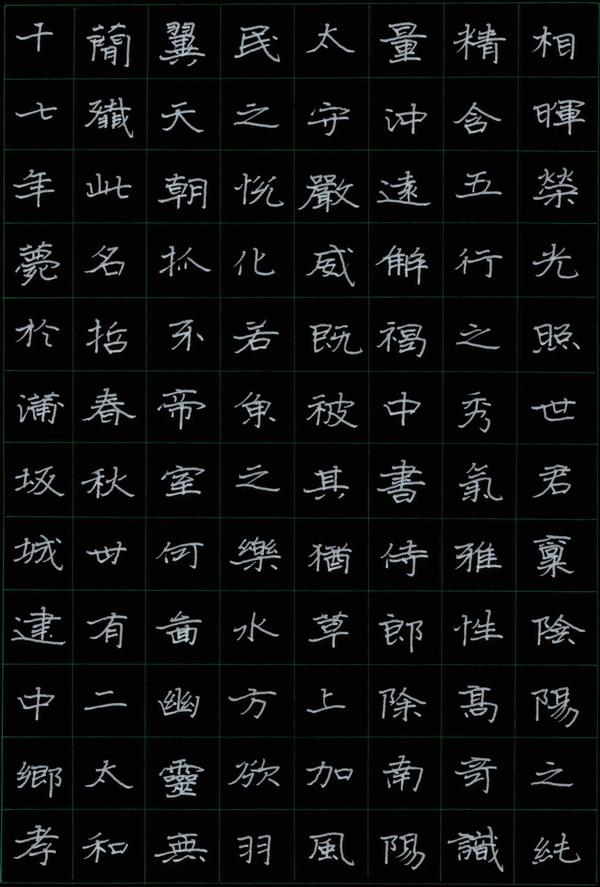 相暉榮光照世君稟陰陽之純
精含五行之秀氣雅性高奇識
量沖遠解褐中書侍郎除南陽
太守嚴威既被其猶草上加風
民之悅化若魚之樂水方欲羽
翼天朝抓牙帝室何啚幽靈無
簡殲此名哲春秋卌有二太和
十七年薨於蒲坂城建中鄉孝